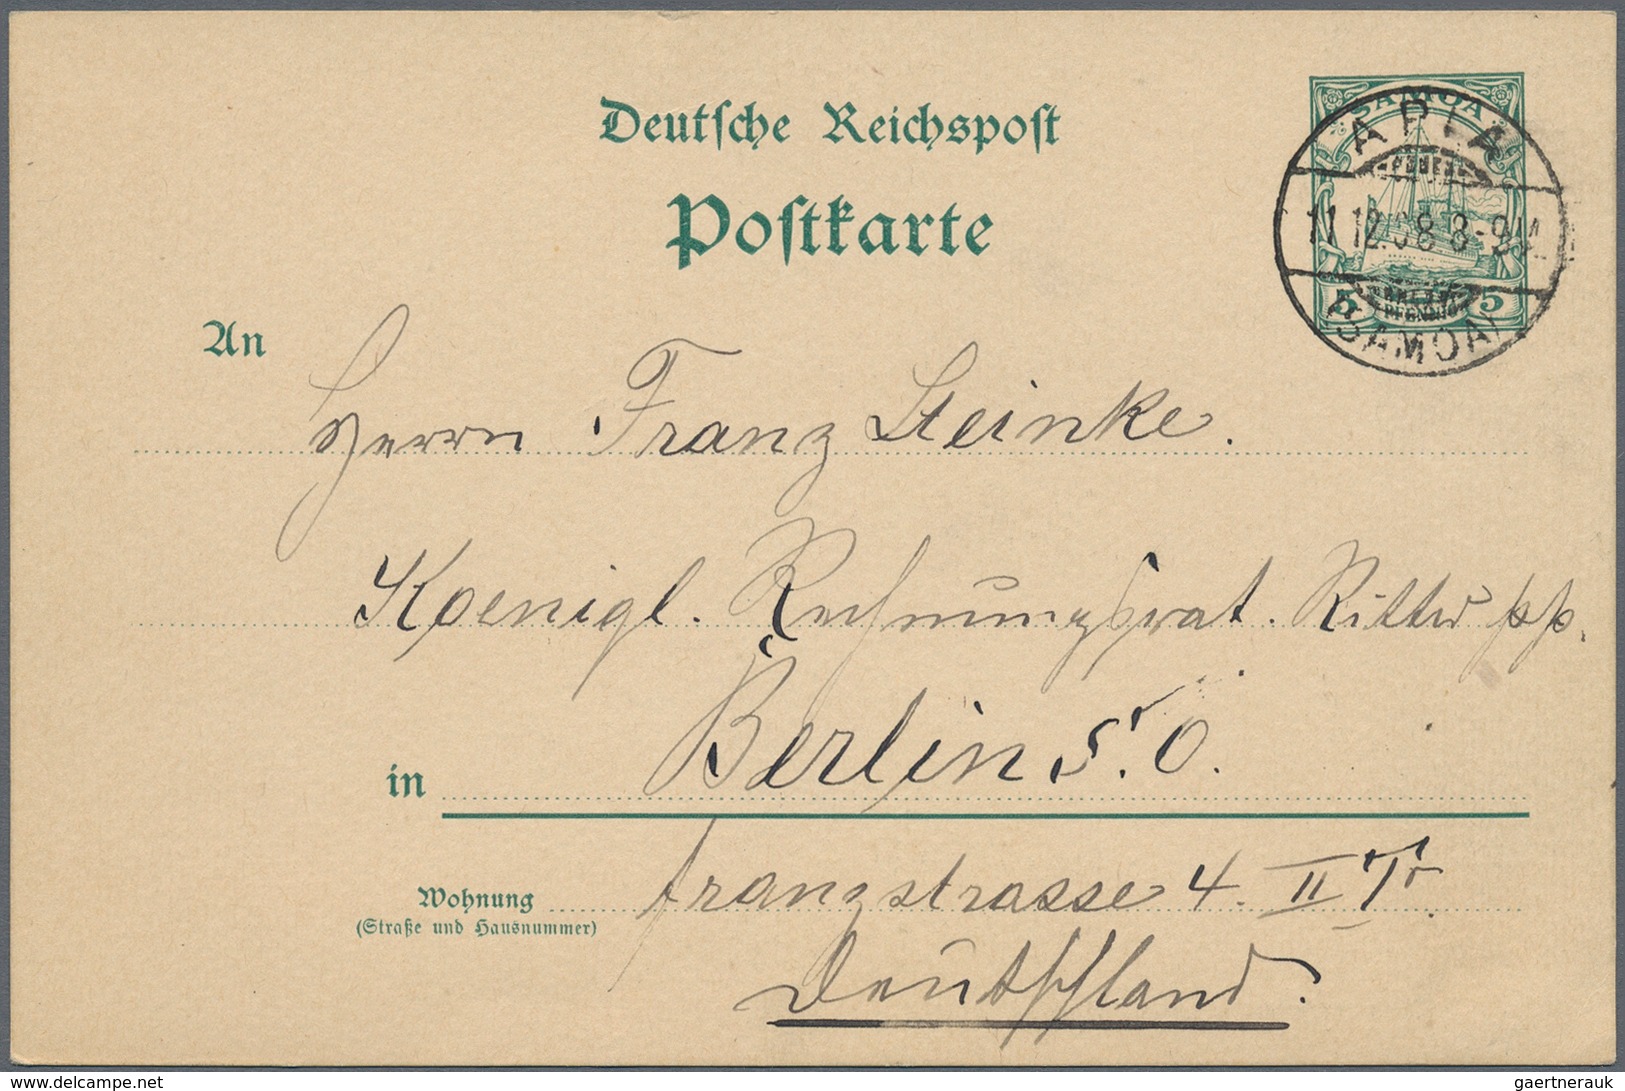 Deutsche Reichspost
Postkarte
SAMOA
APIA
11.12.08 8-9V.
5 PFENNIG 5
(SAMOA)
An
Herrn Franz Steinke.
Koenigl. Rechnungsrat. Ritter pp.
in Berlin S.O.
Wohnung Franzstrasse 4. II Tr.
(Straße und Hausnummer)
Deutschland.
www.delcampe.net
gaertnerauk